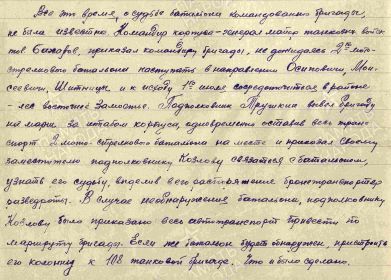 Все это время, о судьбе батальона командованию бригады,
не была известна. Командир корпуса - генерал майор танковых войск
тов Бахаров, приказал командиру бригады, не дожидаясь 2го мото-
стрелкового батальона наступать в направлении Осиповичи, Мои-
сеевичи, Шитницы и к исходу 1го июля сосредоточиться в районе
- лес восточнее Замостье. Подполковник Трушкин вывел бригаду
на марш за штабом корпуса, одновременно оставив весь транс-
порт 2 мото-стрелкового батальона на месте и приказал своему
заместителю подполковнику Козлову связаться с батальоном,
узнать его судьбу, выделив в его распоряжение бронетранспортер
разведроты. В случае необнаружения батальона, подполковнику
Козлову было приказано весь автотранспорт привести по
маршруту бригады. Если же батальон будет обнаружен, пристроить
его колонну к 108 танковой бригаде. Что и было сделано.